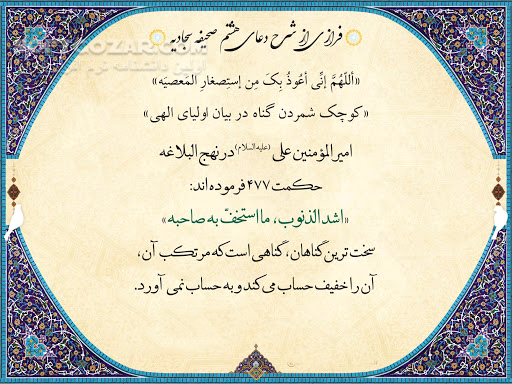 فرازی از شرح دعای هشتم صحیفه سجادیه
«اَللّهُمَّ إنّی أعُوذُ بِکَ مِن إستِصغارِ المَعصیَه»
«کوچک شمردن گناه در بیان اولیای الهی»
امیرالمؤمنین علی (علیه السلام) در نهج البلاغه
حکمت ۴۷۷ فرموده‌اند:
«اشد الذنوب، ما استخفّ به صاحبه»
سخت ترین گناهان، گناهی است که مرتکب آن،
آن را خفیف حساب می کند و به حساب نمی آورد.